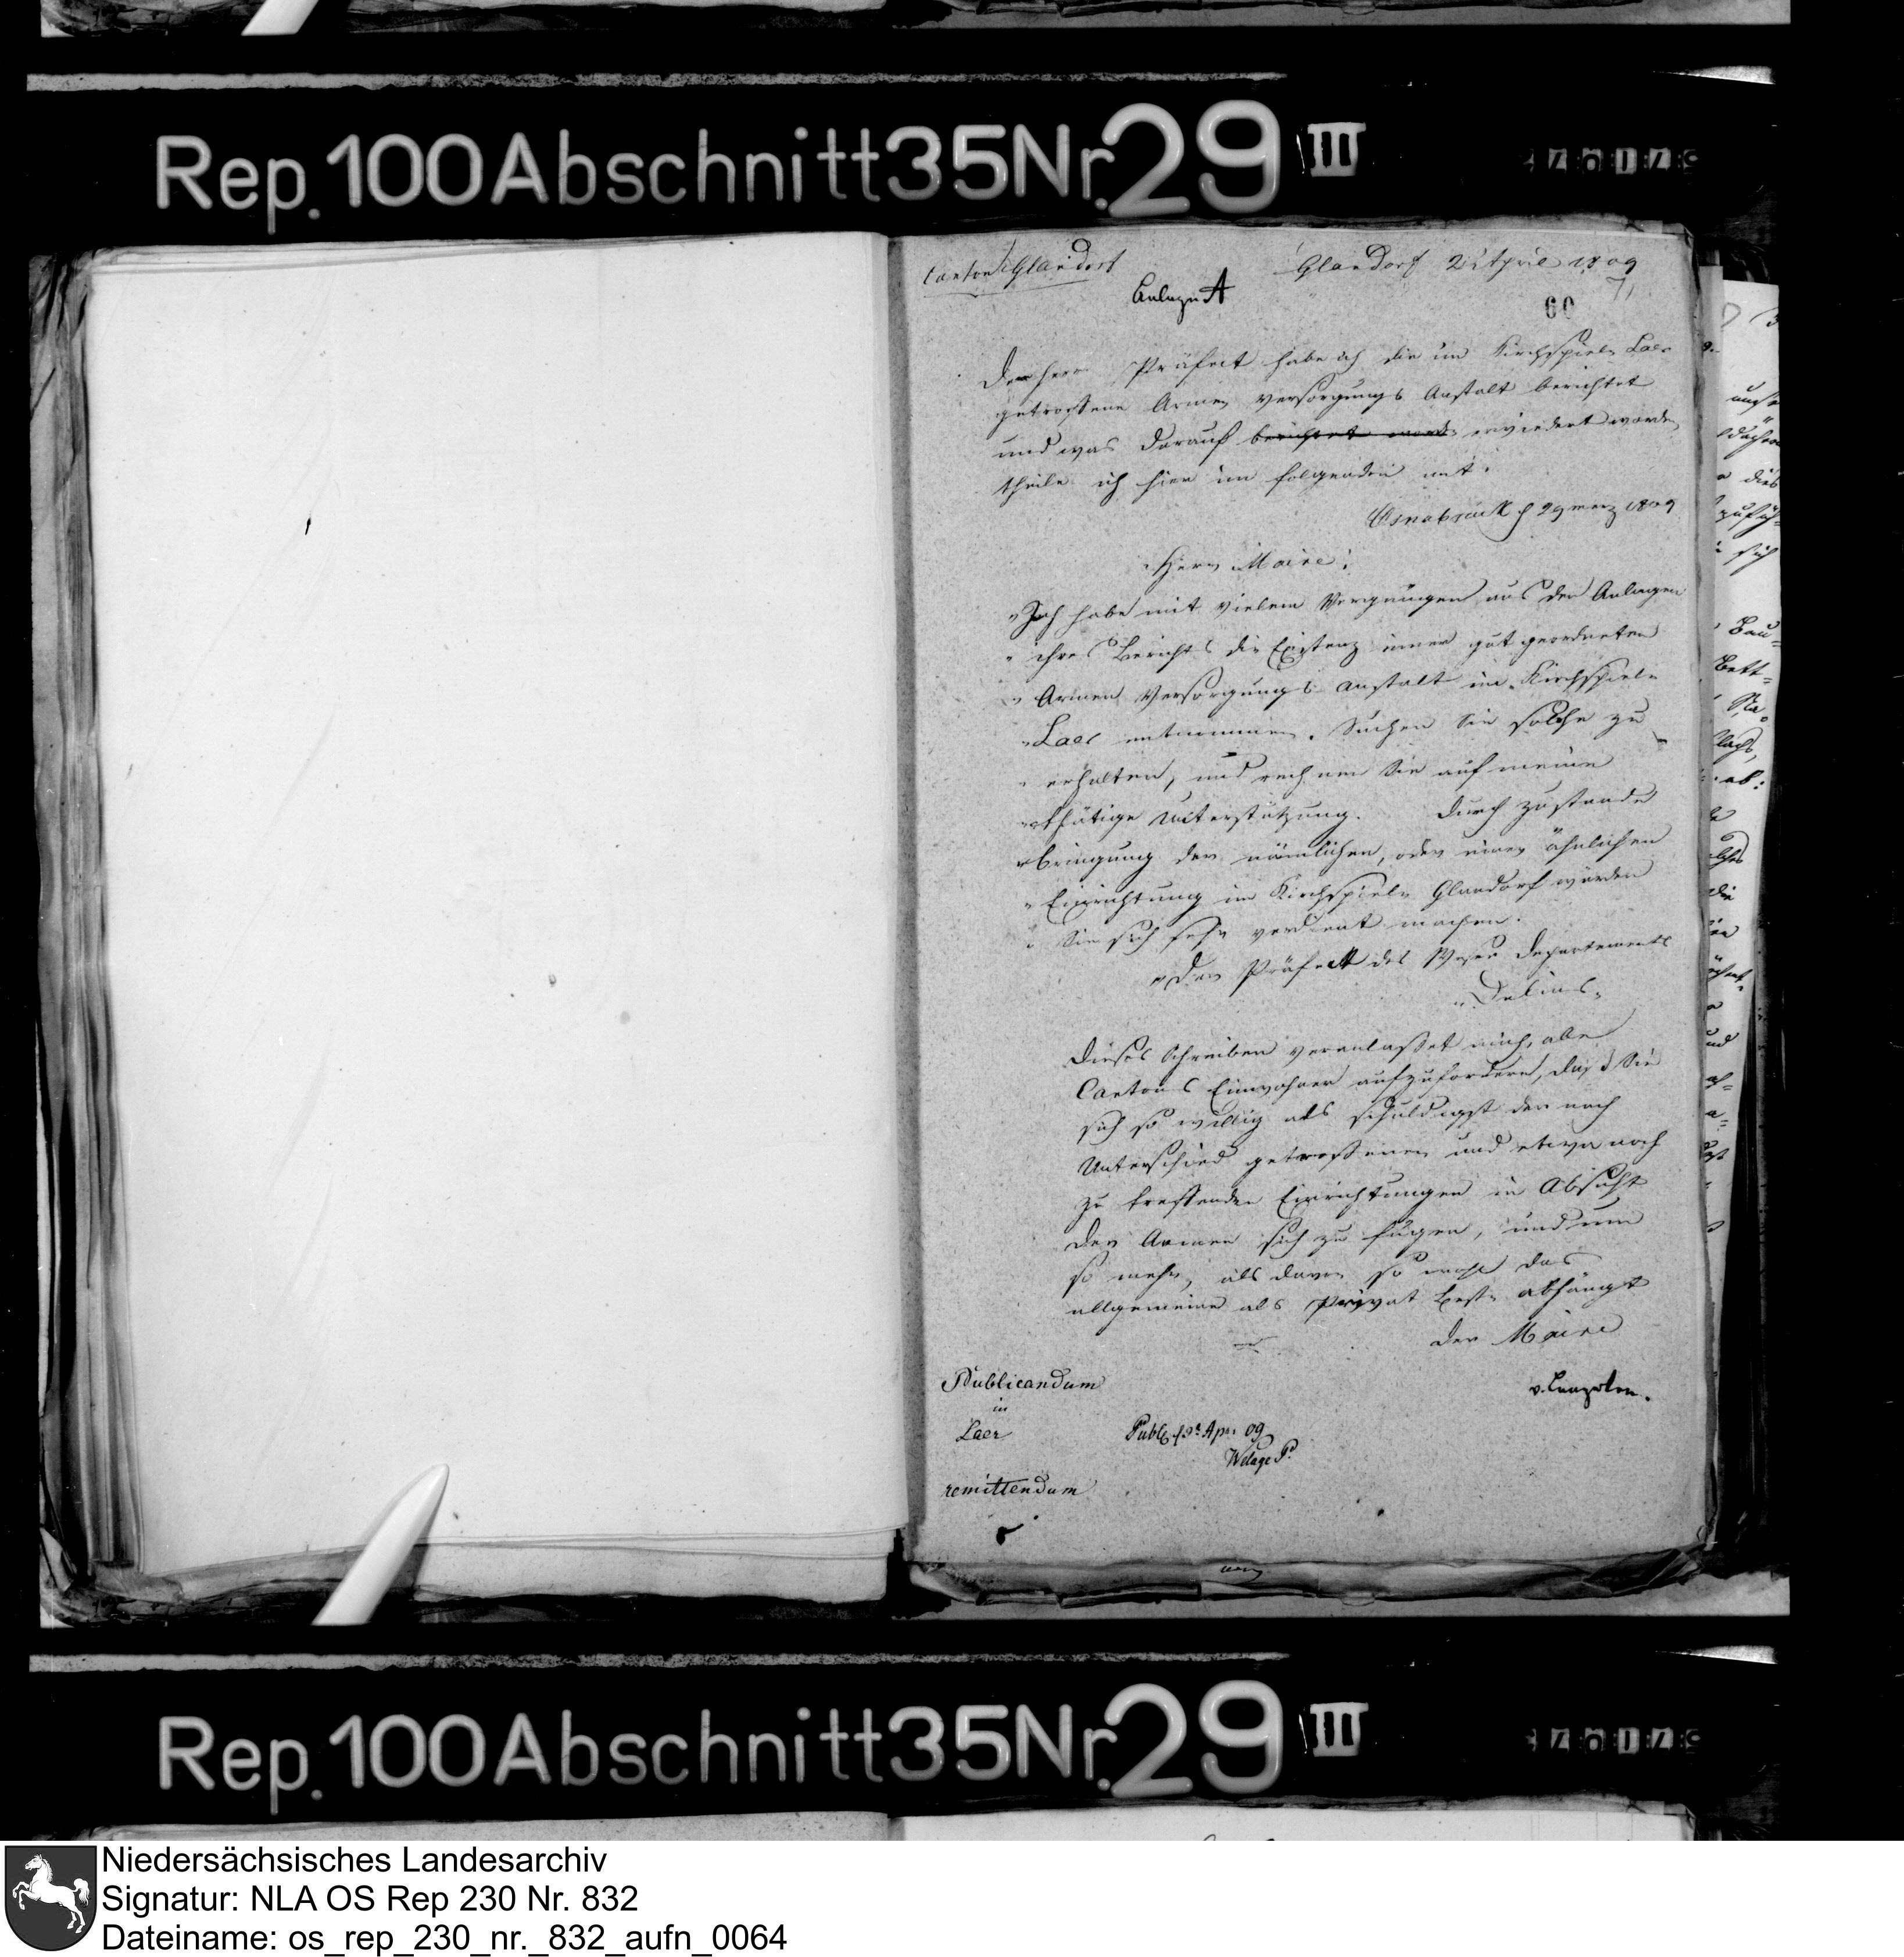 Rep. 100 Abschnitt 35 Nr. 29 III
Canton Glandorf
Glandorf 2t April 1809
Anlage A
60
71
Dem herrn Präfect habe ich die im Kirchspiele Laer
getroffene Armen versorgungs Anstalt berichtet
und was darauf berichtet worden erwiedert worden,
theile ich hier im folgenden mit.
Osnabrück d 29 merz 1809
Herr Maire!
„Ich habe mit vielem Vergnügen aus den Anlagen
„ihres Berichts die Existenz einer gut geordneten
„Armen Versorgungs anstalt im Kirchspiele
„Laer entnommen. Suchen Sie solche zu
„erhalten, und rechnen Sie auf meine
„thätige Unterstützung. Durch zustande
„bringung der nämlichen, oder einer ähnlichen
„Einrichtung im Kirchspiele Glandorf würden
„Sie sich sehr verdient machen.
„Der Präfect des Weser Departements
„Delius„
Dieses Schreiben veranlaßet mich, alle
Cantons Einwohner aufzufordern, daß Sie
sich so willig als schuldigst der nach
Unterschied getroffenen und etwa noch
zu treffenden Einrichtungen in Absicht
der Armen sich zu fügen, und um
so mehr, als davon so wohl das
allgemeine als Privat Beste abhängt
Der Maire
Publicandum
in
Laer
Publ. d 9t Apr. 09
Welage P.
remittendum
Rep. 100 Abschnitt 35 Nr. 29 III
Niedersächsisches Landesarchiv
Signatur: NLA OS Rep 230 Nr. 832
Dateiname: os_rep_230_nr._832_aufn_0064